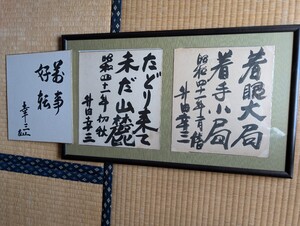 着眼大局
着手小局
昭和四十一年
升田幸三
たどり来て
未だ山麓
昭和四十一年初秋
升田幸三
萬事
好転
幸三